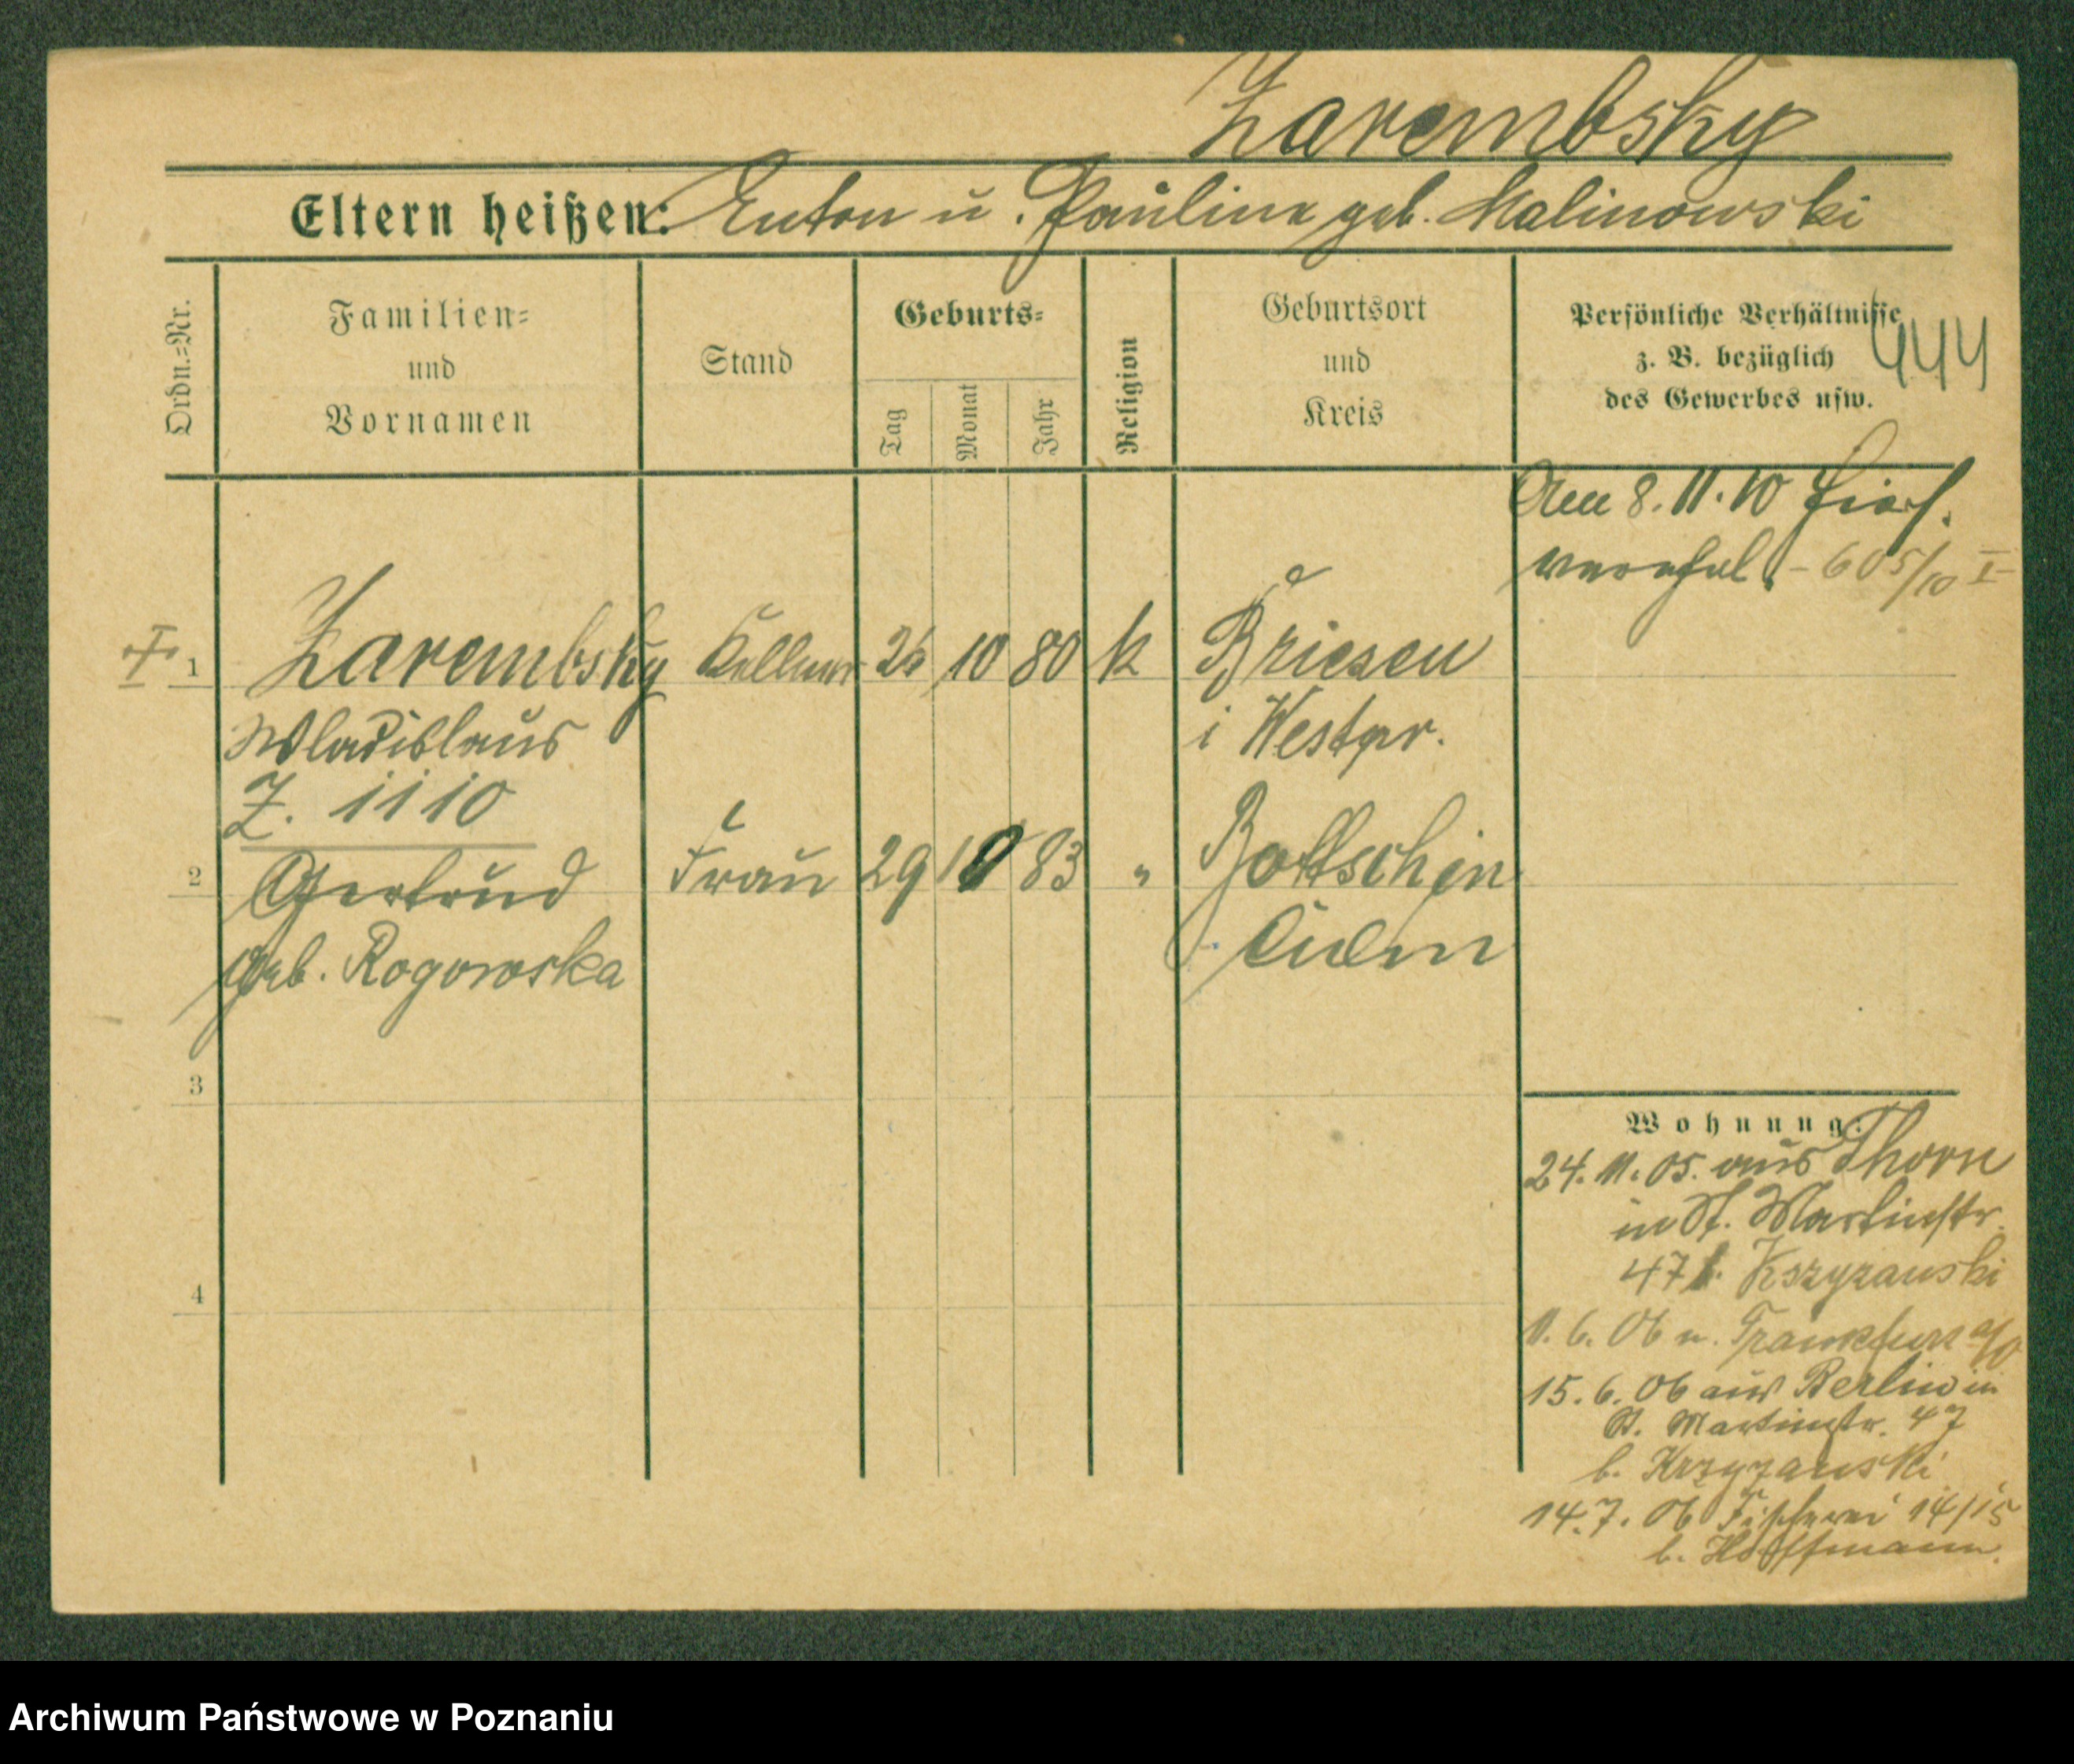 Zarembsky
Eltern heißen: Anton u. Paulina geb. Malinowski
Ordn.-Nr.
Familien-
und
Vornamen
Stand
Geburts-
Tag
Monat
Jahr
Religion
Geburtsort
und
Kreis
Persönliche Verhältnisse
z. B. bezüglich
des Gewerbes usw.
444
Am 8.11.10 hier
verehel. - 605/10 I
I 1 Zarembsky Kellner 26 10 80 k Briesen
Wladislaus i Westpr.
Z. 11 10
2 Gertrud Frau 29 10 83 " Bottschin
geb. Rogowska Culm
3
4
Wohnung:
24. 11. 05. aus Thorn
in St. Martinstr.
47 b. Kszyzanski
11. 6. 06 n. Frankfurt a/O
15. 6. 06 aus Berlin in
St. Martinstr. 47
b. Krzyzanski
14. 7. 06 Fischerei 14/15
b. Hoffmann.
Archiwum Państwowe w Poznaniu